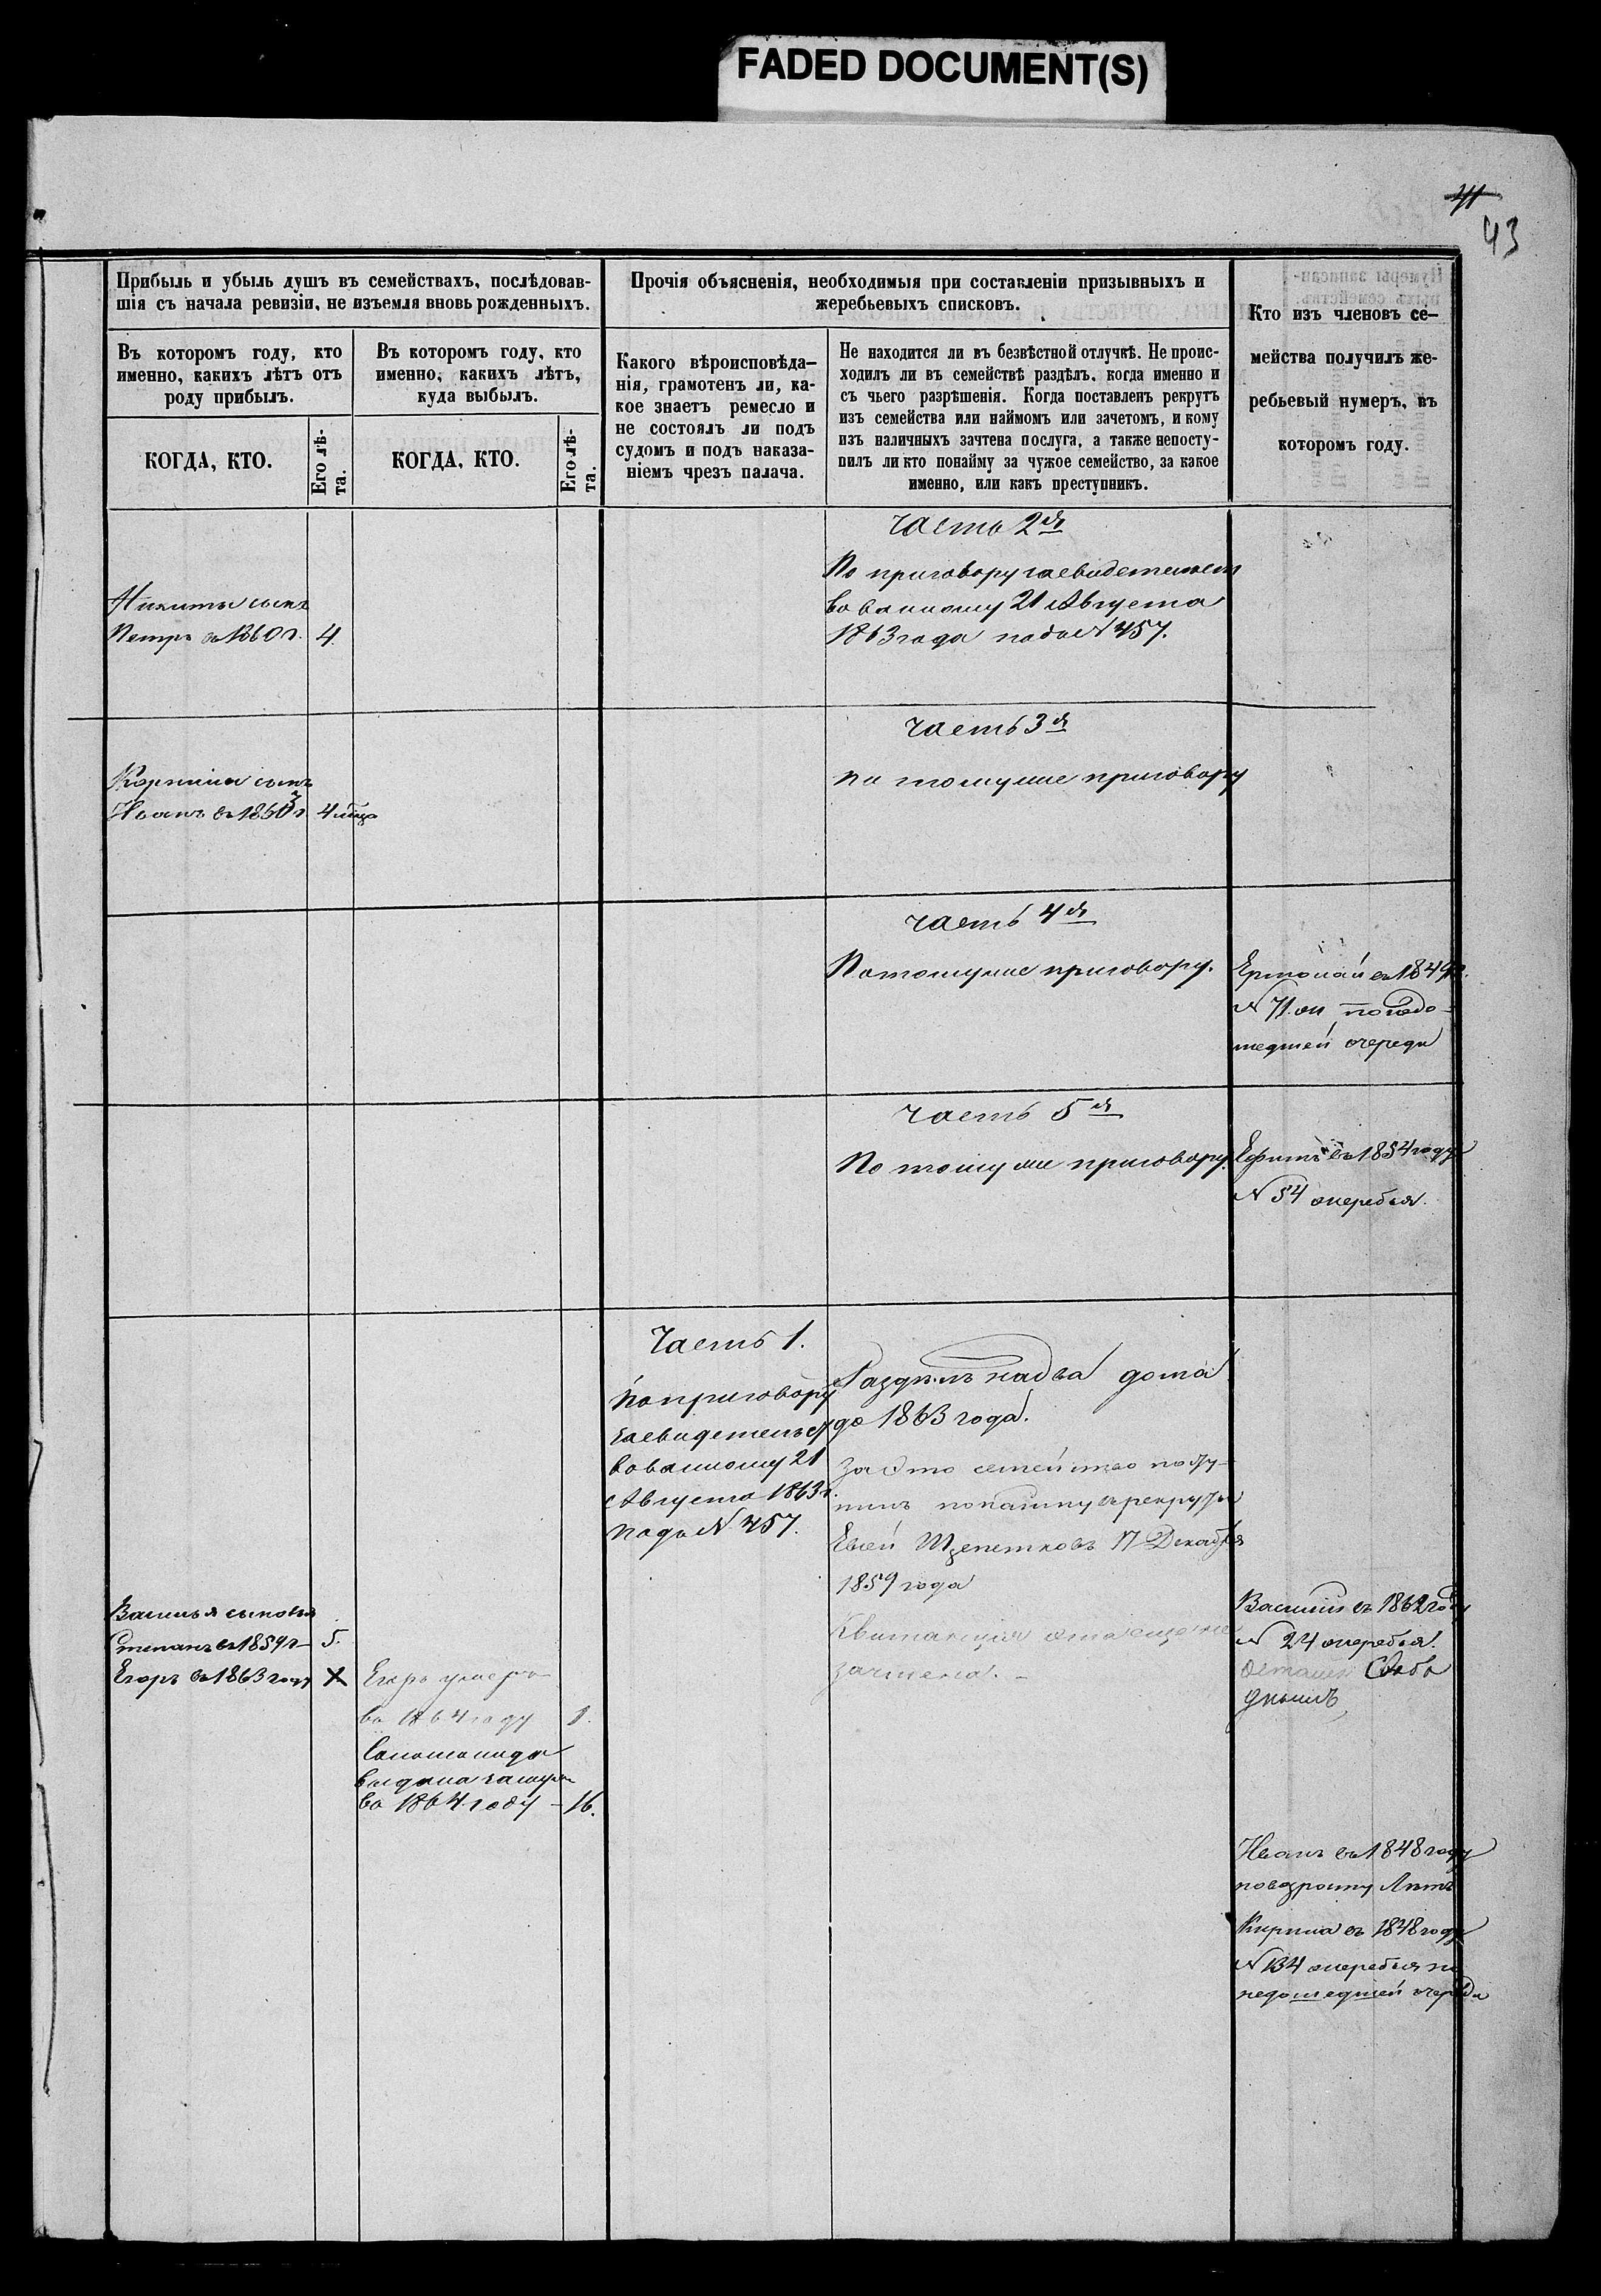 FADED DOCUMENT(S)
41
43
Прибыль и убыль душъ въ семействахъ, послѣдовав-
шія съ начала ревизіи, не изъемля вновь рожденныхъ.
Въ которомъ году, кто
именно, какихъ лѣтъ отъ
роду прибылъ.
Въ которомъ году, кто
именно, какихъ лѣтъ,
куда выбылъ.
КОГДА, КТО.
Его лѣ-
та.
КОГДА, КТО.
Его лѣ-
та.
Прочія объясненія, необходимыя при составленіи призывныхъ и
жеребьевыхъ списковъ.
Какого вѣроисповѣда-
нія, грамотенъ ли, ка-
кое знаетъ ремесло и
не состоялъ ли подъ
судомъ и подъ наказа-
ніемъ чрезъ палача.
Не находится ли въ безвѣстной отлучкѣ. Не проис-
ходилъ ли въ семействѣ раздѣлъ, когда именно и
съ чьего разрѣшенія. Когда поставленъ рекрутъ
изъ семейства или наймомъ или зачетомъ, и кому
изъ наличныхъ зачтена послуга, а также непосту-
пилъ ли кто понайму за чужое семейство, за какое
именно, или какъ преступникъ.
Кто изъ членовъ се-
мейства получилъ же-
ребьевый нумеръ, въ
которомъ году.
часть 2я
По приговору засвидетельст
вованному 21 Августа
1863 года подъ № 457.
Никиты сынъ
Петръ въ 1860 г. 4.
часть 3я
по томуже приговору
сынъ
Иванъ въ 1863 г 4 мѣца
часть 4я
По томуже приговору.
въ 1849 г.
№ 71 по недо-
шедшей очереди
часть 5я
По томуже приговору.
Ефимъ въ 1854 году
№ 54 жеребья.
Часть 1.
По приговору
засвидетельст
вованному 21
Августа 1863 г.
подъ № 457.
Раздѣлъ на два дома
до 1863 года.
За это семейство посту-
пилъ по найму въ рекруты
Евсей Щепетковъ 17 Декабря
1859 года
Квитанция
зачтена.
Василья сыновья
Степанъ въ 1859 г 5.
Егоръ въ 1863 году
Егоръ умеръ
въ 1864 году 1.
Соломонида
выдана замужъ
въ 1864 году 16.
Василий въ 1862 году
№ 24 жеребья.
осталси свобо
днымъ
Иванъ въ 1848 году
по возрасту лѣтъ
Кирила въ 1848 году
№ 134 жеребья по
недошедшей очереди